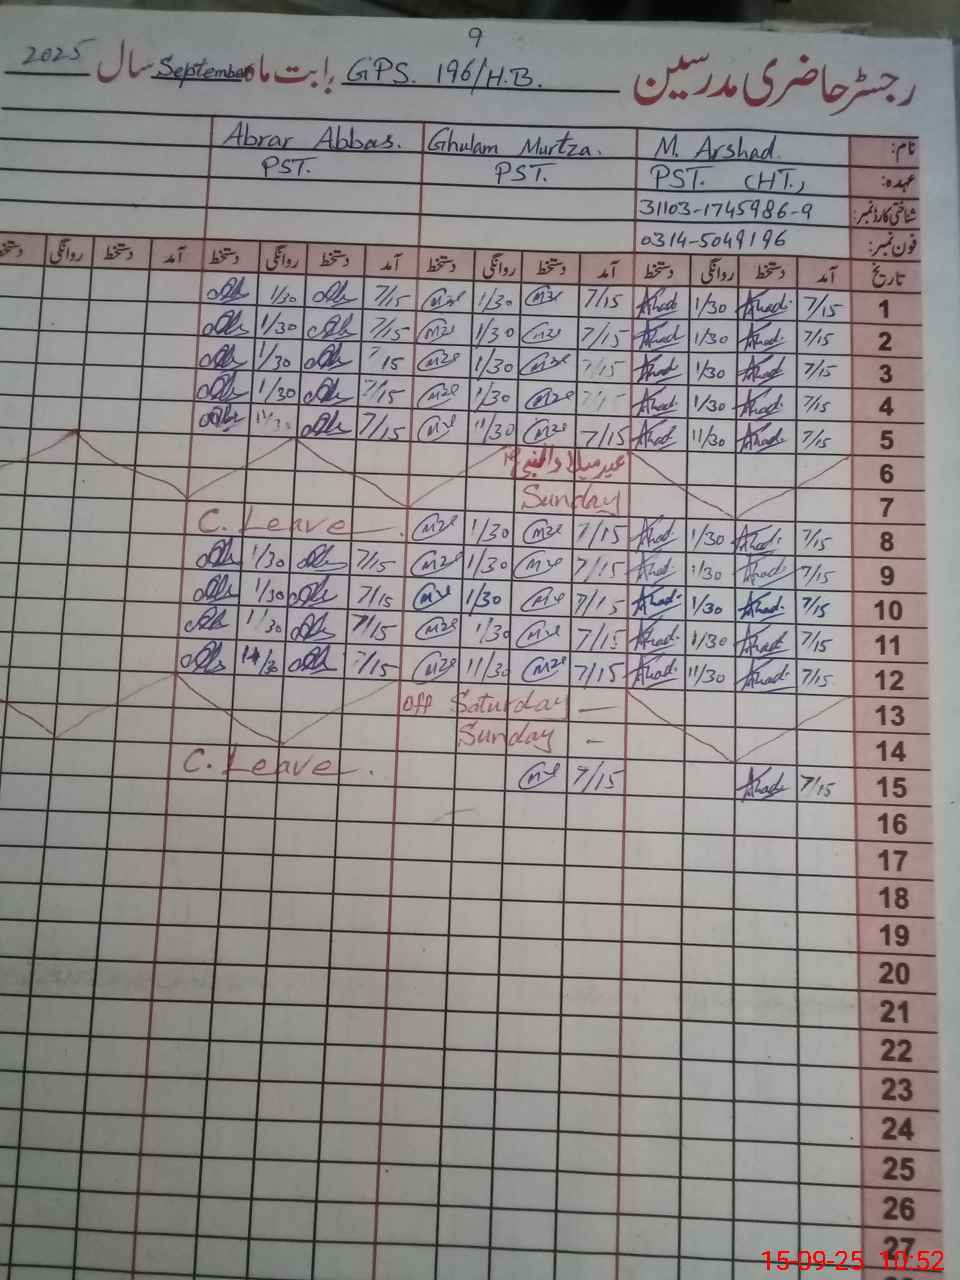 9
رجسٹر حاضری مدرسین GPS. 196/H.B. بابت ماہ September سال 2025
نام: M. Arshad. Ghulam Murtza. Abrar Abbas.
عہدہ: PST. (HT., PST. PST.
شناختی کارڈ نمبر: 31103-1745986-9
فون نمبر: 0314-5049196
تاریخ آمد دستخط روانگی دستخط آمد دستخط روانگی دستخط آمد دستخط روانگی دستخط آمد دستخط روانگی دستخط
1 7/15 Ahad. 1/30 Ahad 7/15 1/30 7/15 1/30
2 7/15 Ahad. 1/30 Ahad 7/15 1/30 7/15 1/30
3 7/15 Ahad. 1/30 Ahad 7/15 1/30 7/15 1/30
4 7/15 Ahad. 1/30 Ahad 7/15 1/30 7/15 1/30
5 7/15 Ahad. 11/30 Ahad 7/15 11/30 7/15 11/30
6 عید میلاد النبی
7 Sunday
8 7/15 Ahad. 1/30 Ahad. 7/15 1/30 C. Leave
9 7/15 Ahad. 1/30 Ahad. 7/15 1/30 7/15 1/30
10 7/15 Ahad. 1/30 Ahad. 7/15 1/30 7/15 1/30
11 7/15 Ahad. 1/30 Ahad. 7/15 1/30 7/15 1/30
12 7/15 Ahad. 11/30 Ahad. 7/15 11/30 7/15 11/30
13 off Saturday —
14 Sunday -
15 7/15 Ahad 7/15 C. Leave.
16
17
18
19
20
21
22
23
24
25
26
27
15-09-25 10:52